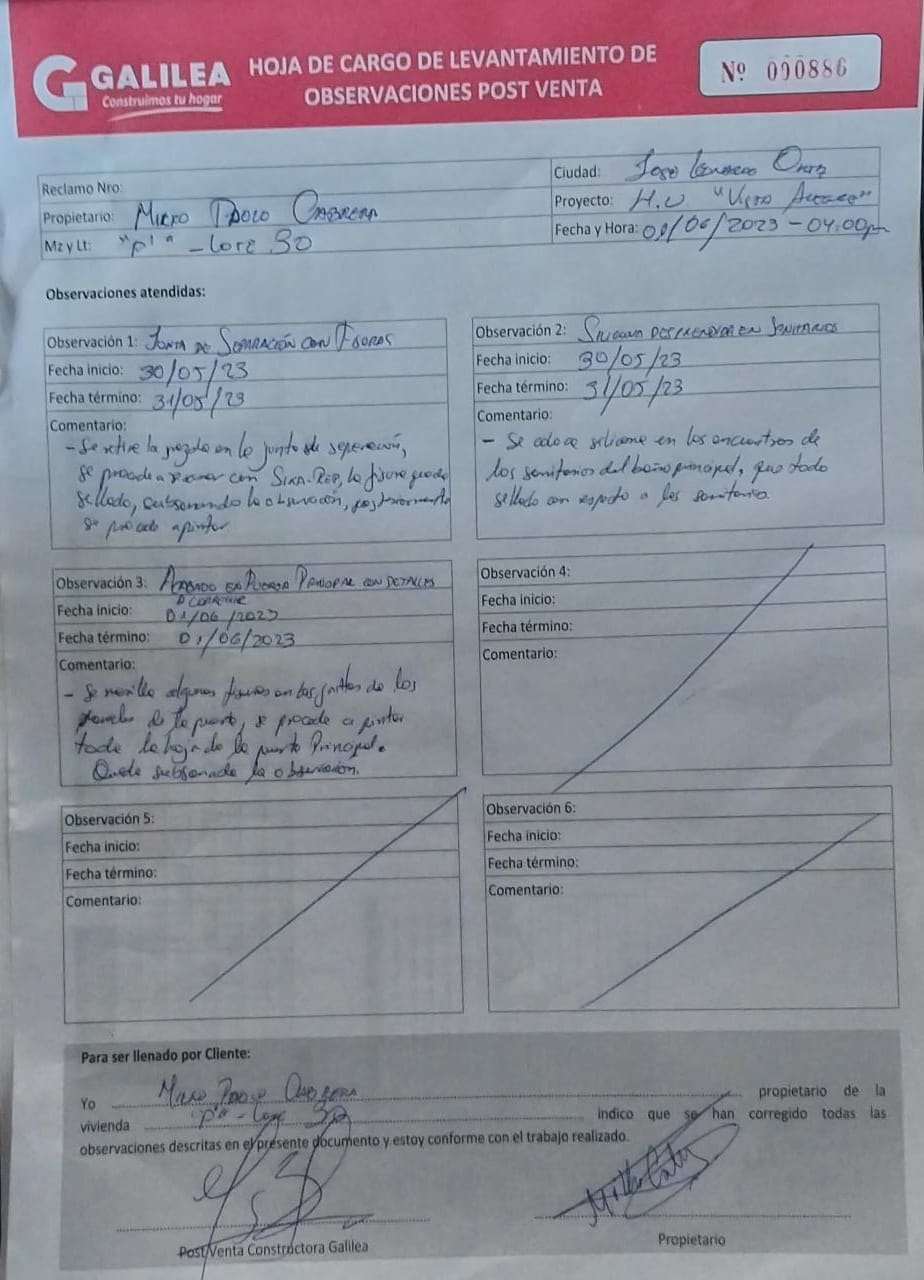 GALILEA
Construimos tu hogar
HOJA DE CARGO DE LEVANTAMIENTO DE
OBSERVACIONES POST VENTA
Nº 000886
Reclamo Nro:
Propietario: Mirko Paolo Cabrera
Mz y Lt: "P'" - Lote 30
Ciudad: Jose Leonardo Ortiz
Proyecto: H.U "Vista
Fecha y Hora: 01/06/2023 - 04:00pm
Observaciones atendidas:
Observación 1: Junta de Separación con Fisuras
Fecha inicio: 30/05/23
Fecha término: 31/05/23
Comentario:
- Se retire la mezcla en la junta de separación,
se procede a con SIKA-REP, la fisura queda
sellado, subsanando la observación, posteriormente
se procede a pintar
Observación 2: Silicona en Sanitarios
Fecha inicio: 30/05/23
Fecha término: 31/05/23
Comentario:
- Se coloca silicona en los encuentros de
los sanitarios del baño principal, todo
sellado con respecto a los sanitarios
Observación 3: Acabado en Puerta Principal con Detalles
a corregir
Fecha inicio: 01/06/2023
Fecha término: 01/06/2023
Comentario:
- Se masilla algunas fisuras en las juntas de los
paneles de la puerta, se procede a pintar
toda la hoja de la puerta Principal.
Queda subsanado la observación.
Observación 4:
Fecha inicio:
Fecha término:
Comentario:
Observación 5:
Fecha inicio:
Fecha término:
Comentario:
Observación 6:
Fecha inicio:
Fecha término:
Comentario:
Para ser llenado por Cliente:
Yo Mirko Paolo Cabrera propietario de la
vivienda "P'" - Lote 30 indico que se han corregido todas las
observaciones descritas en el presente documento y estoy conforme con el trabajo realizado.
Post Venta Constructora Galilea
Propietario